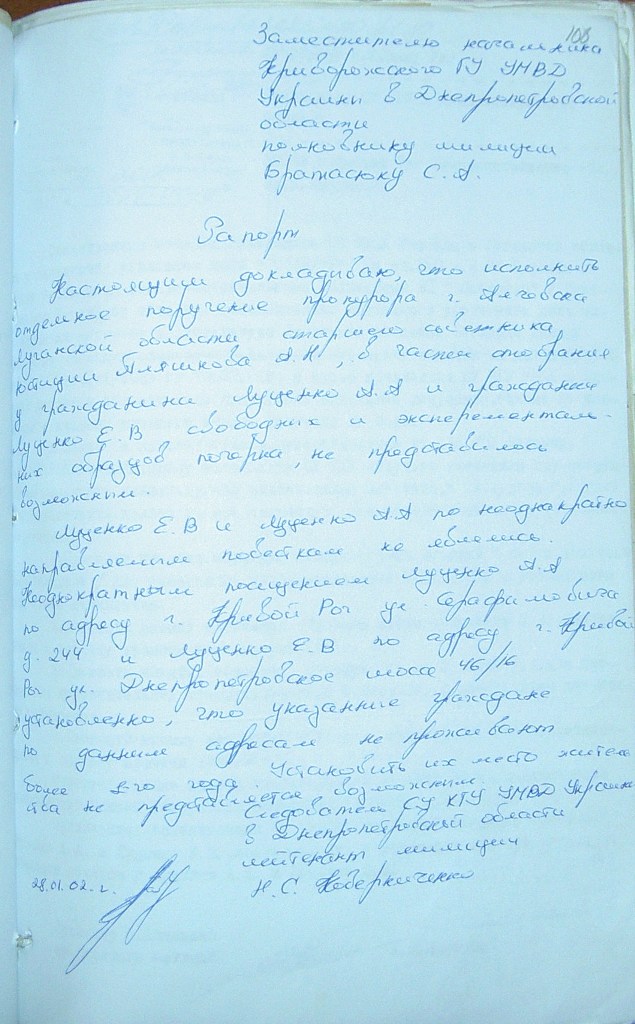 108
Заместителю начальника
Криворожского ГУ УМВД
Украины в Днепропетровской
области
полковнику милиции
Братасюку С.А.
Рапорт
Настоящим докладываю, что исполнить
отдельное поручение прокурора г.
Луганской области старшего советника
юстиции Пляшкова А.Н, в части отобрания
у гражданина Луценко А.А и гражданки
Луценко Е.В свободных и эксперементаль-
ных образцов почерка, не представилось
возможным.
Луценко Е.В и Луценко А.А по неоднакратно
направляемым повесткам не являлись.
Неоднократным посищением Луценко А.А
по адресу г. Кривой Рог ул. Серафимовича
д. 244 и Луценко Е.В по адресу г. Кривой
Рог ул. Днепропетровское шоссе 46/16
установленно, что указанные граждане
по данным адресам не проживают
более года. Установить их место житель
ства не представляется возможным.
Следователь СУ КГУ УМВД Украины
в Днепропетровской области
лейтенант милиции
28.01.02.г. Н.С.